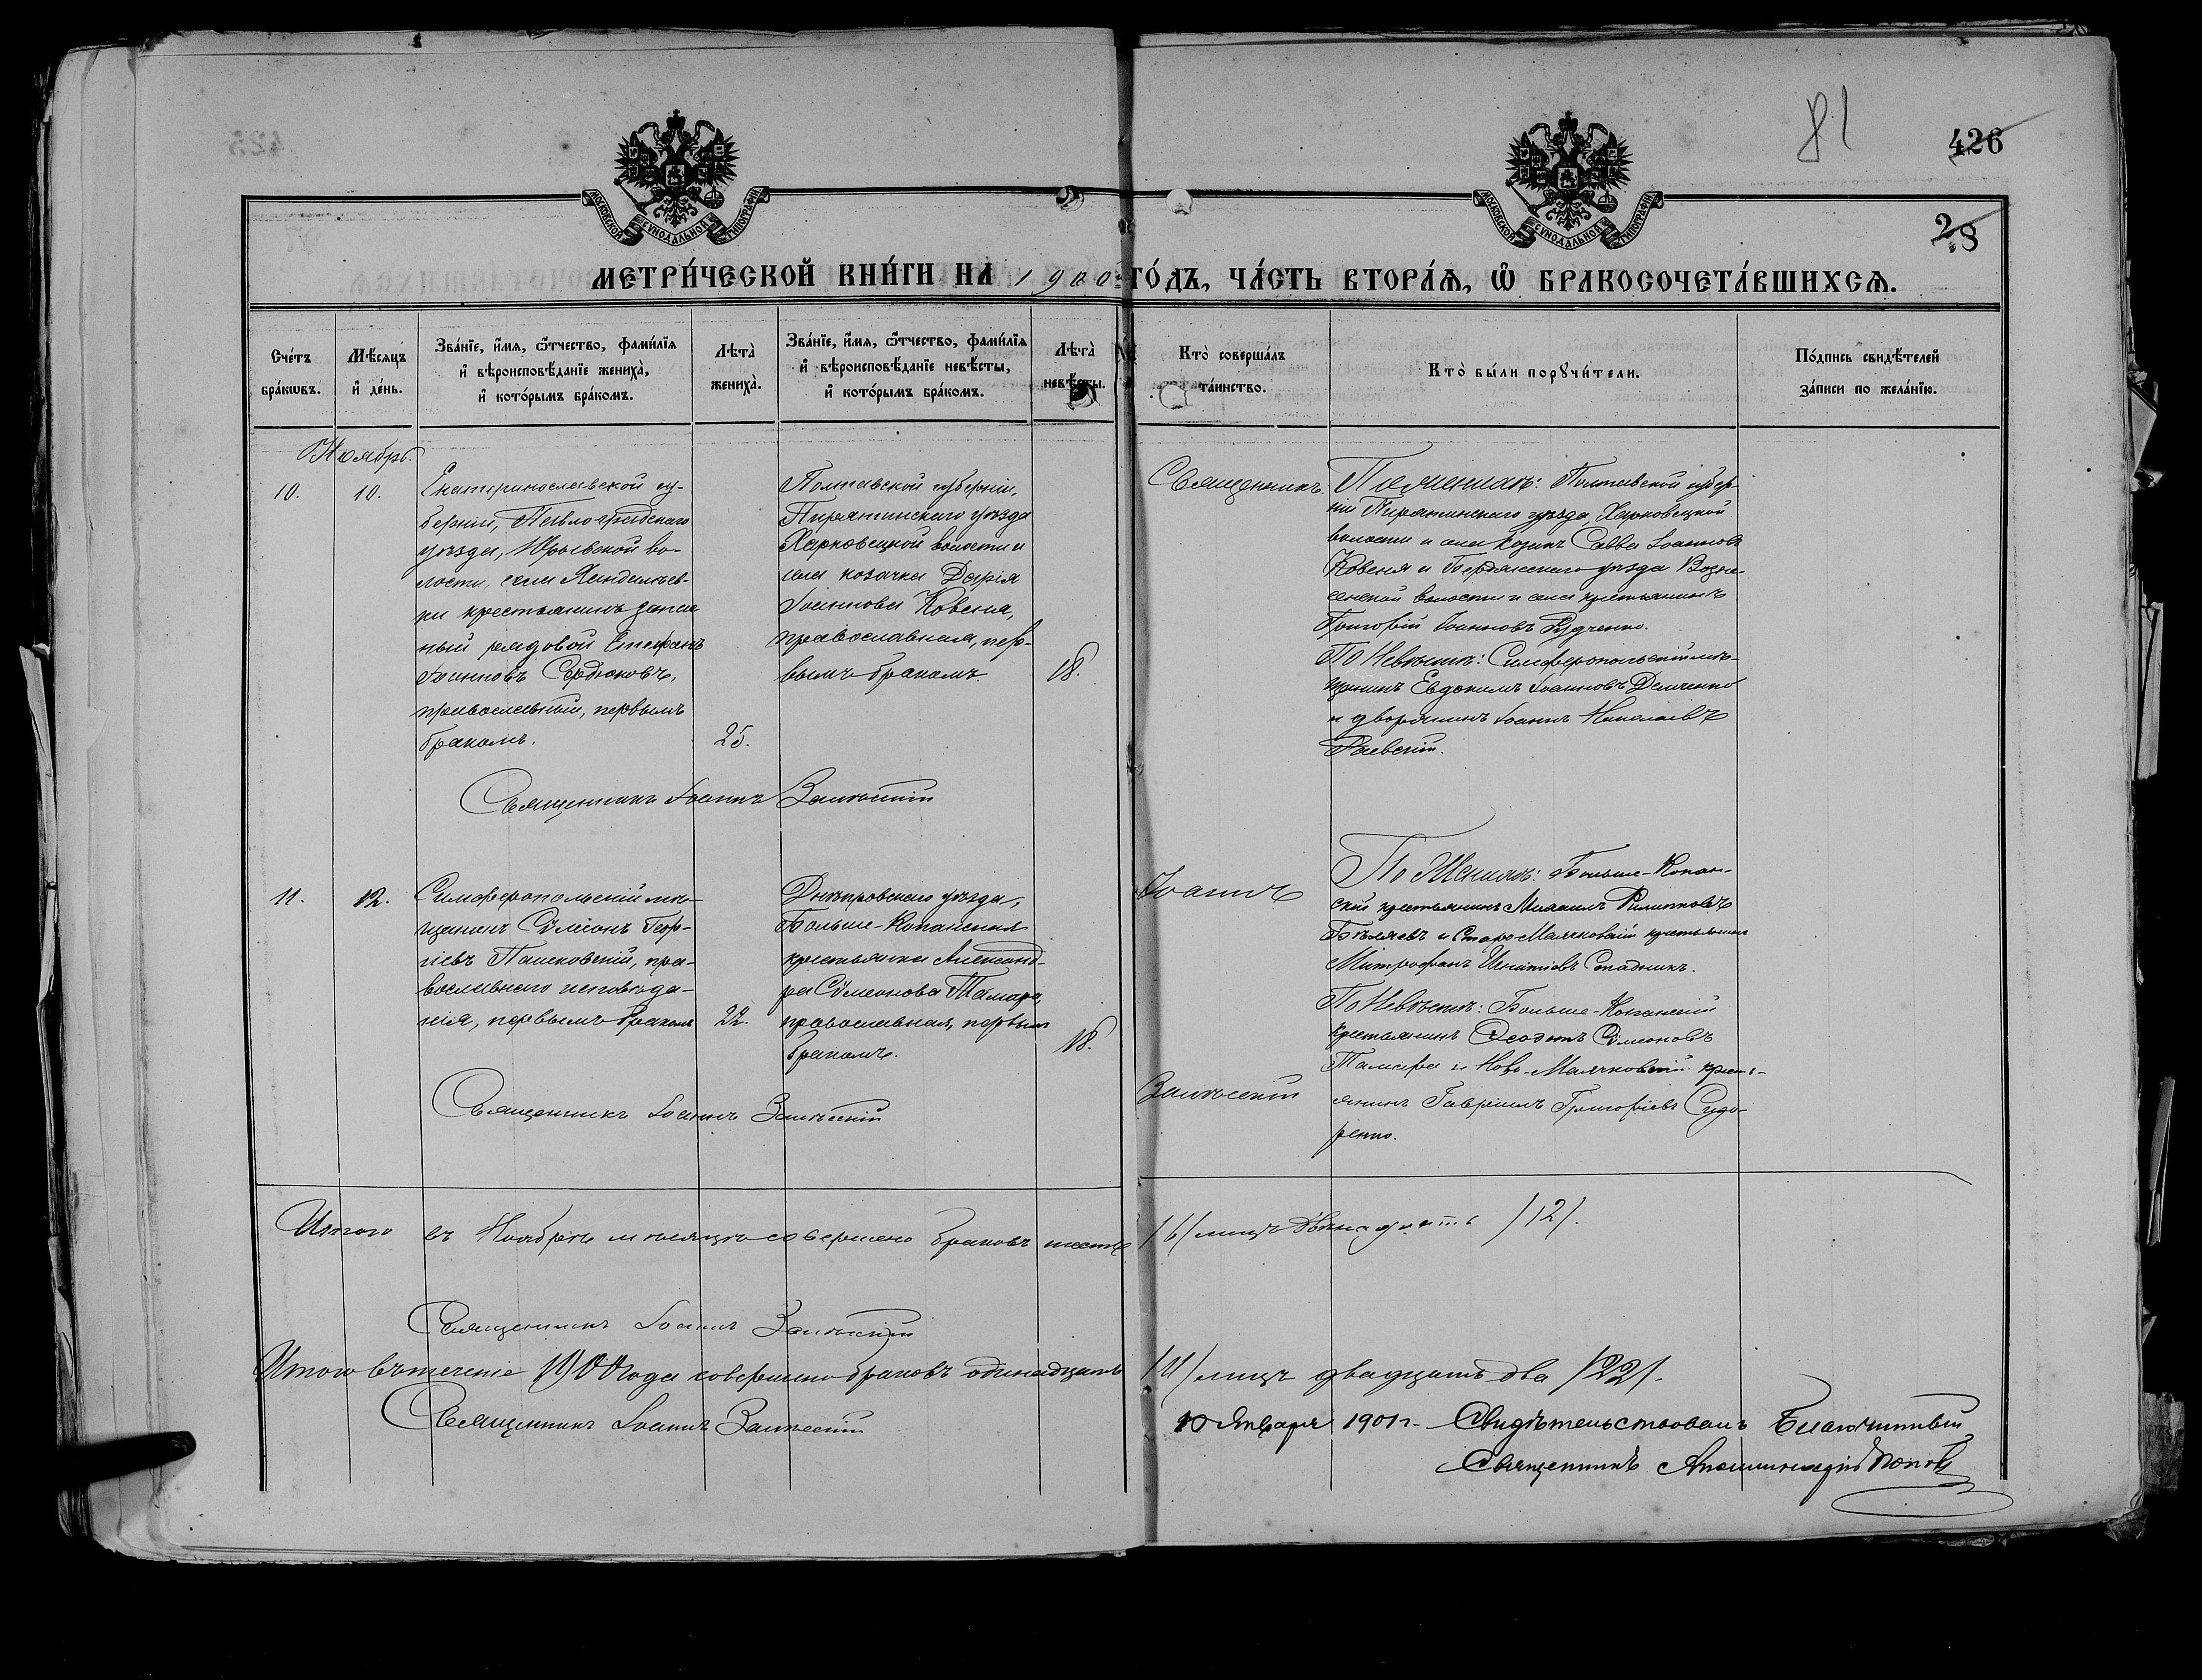 81
426
28
МОСКОВСКОЙ СѴНОДАЛЬНОЙ ТИПОГРАФІИ
МОСКОВСКОЙ СѴНОДАЛЬНОЙ ТИПОГРАФІИ
МЕТРИ́ЧЕСКОЙ КНИ́ГИ НА 1900 ГО́ДЪ, ЧА́СТЬ ВТОРА́Я, Ѡ҆ БРАКОСОЧЕТА́ВШИХСѦ.
Сче́тъ бра́кѡвъ.
Мѣ́сяцъ и҆ де́нь.
Зва́нїе, и҆́мя, ѻ҆́тчество, фами́лїя
и҆ вѣроисповѣ́данїе жениха̀,
и҆ кото́рымъ бра́комъ.
Лѣта̀ жениха̀.
Зва́нїе, и҆́мя, ѻ҆́тчество, фами́лїя
и҆ вѣроисповѣ́данїе невѣ́сты,
и҆ кото́рымъ бра́комъ.
Лѣта̀ невѣ́сты.
Кто̀ соверша́лъ
та́инство.
Кто̀ бы́ли порꙋчи́тели.
По́дпись свидѣ́телей
за́писи по жела́нїю.
Ноябрь.
10.
10.
Екатеринославской гу-
берніи, Павлоградскаго
уѣзда, Юрьевской во-
лости, села
ки крестьянинъ запас
ный рядовой Стефанъ
Іоанновъ Сердюковъ,
православный, первымъ
бракомъ.
25.
Полтавской губерніи,
Пирятинскаго уѣзда
Харковецкой волости и
села козачка Дарія
Іоаннова Ковеня,
православная, пер-
вымъ бракомъ.
18.
Священникъ Іоаннъ Залѣсскій
Священникъ
По Женихѣ: Полтавской губер-
ніи Пирятинскаго уѣзда, Харковецкой
волости и села козакъ Савва Іоанновъ
Ковеня и Бердянскаго уѣзда Возне-
сенской волости и села крестьянинъ
Григорій Іоанновъ Рудченко.
По Невѣстѣ: Симферопольскій мѣ-
щанинъ Евдокимъ Іоанновъ Демченко
и дворянинъ Іоаннъ Николаевъ
Раевскій.
11.
12.
Симферопольскій мѣ-
щанинъ Сѵмеонъ Геор-
гіевъ Пашковскій, пра-
вославнаго исповѣда-
нія, первымъ бракомъ
22.
Днѣпровскаго уѣзда,
Больше-Копанская
крестьянка Александ-
ра Сѵмеонова Тамара,
православная, первымъ
бракомъ.
18.
Священникъ Іоаннъ Залѣсскій
Іоаннъ
Залѣсскій
По Женихѣ: Больше-Копан-
скій крестьянинъ Михаилъ Филипповъ
Бѣляевъ и Старо-Маячковскій крестьянинъ
Митрофанъ Игнатіевъ Стадникъ.
По Невѣстѣ: Больше-Копанскій
крестьянинъ Ѳеодотъ Сѵмеоновъ
Тамара и Ново-Маячковскій крест-
янинъ Гавріилъ Григоріевъ Сидо-
ренко.
Итого въ Ноябрѣ мѣсяцѣ совершено браковъ шесть /6/ лицъ двѣнадцать /12/.
Священникъ Іоаннъ Залѣсскій
Итого въ теченіе 1900 года совершено браковъ одинадцать /11/ лицъ двадцать два /22/.
Священникъ Іоаннъ Залѣсскій
10 Января 1901 г. Свидѣтельствовалъ Благочинный
Священникъ Поповъ